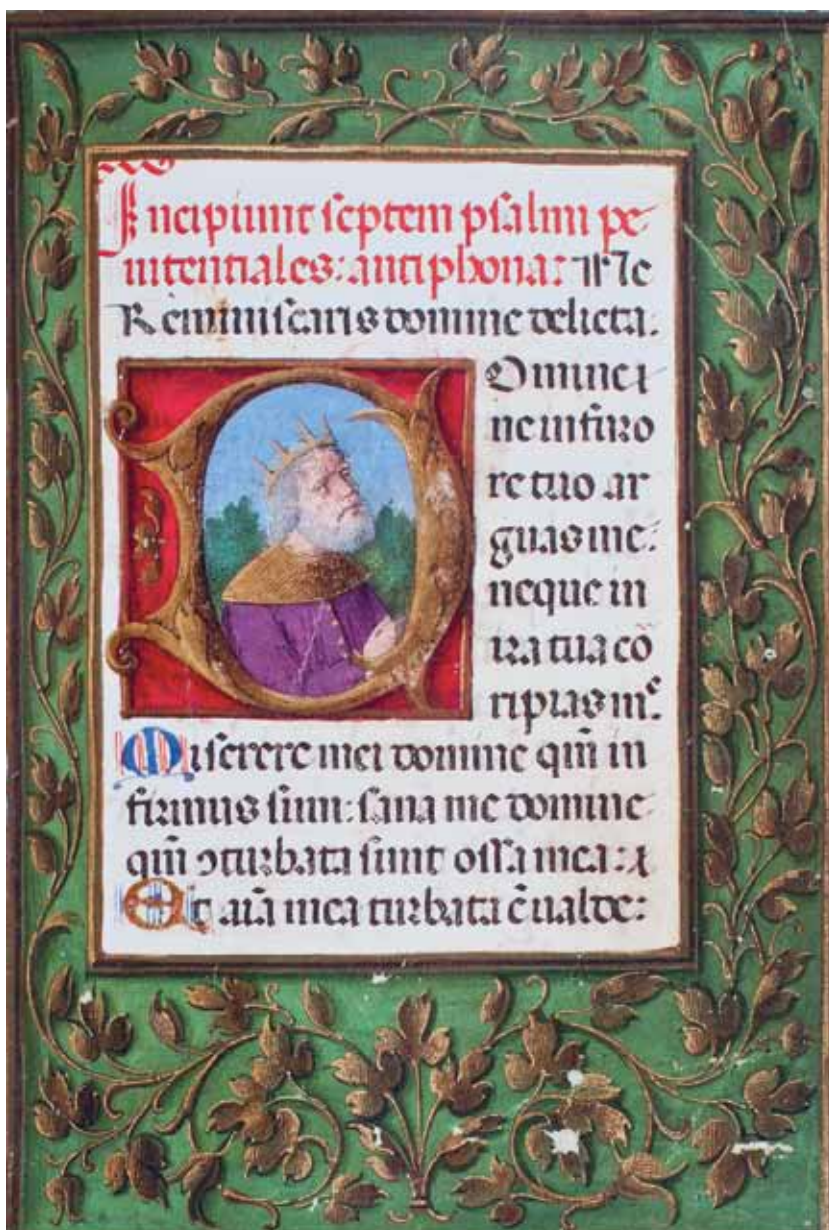 Incipiunt septem psalmi pe
nitentiales: antiphona: Ne
Reminiscaris domine delicta.
Domine
ne in furo
re tuo ar
guas me:
neque in
ira tua cō
ripias me.
Miserere mei domine qm̄ in
firmus sum: sana me domine
qm̄ ↄturbata sunt ossa mea:
Et aīa mea turbata ē ualde: